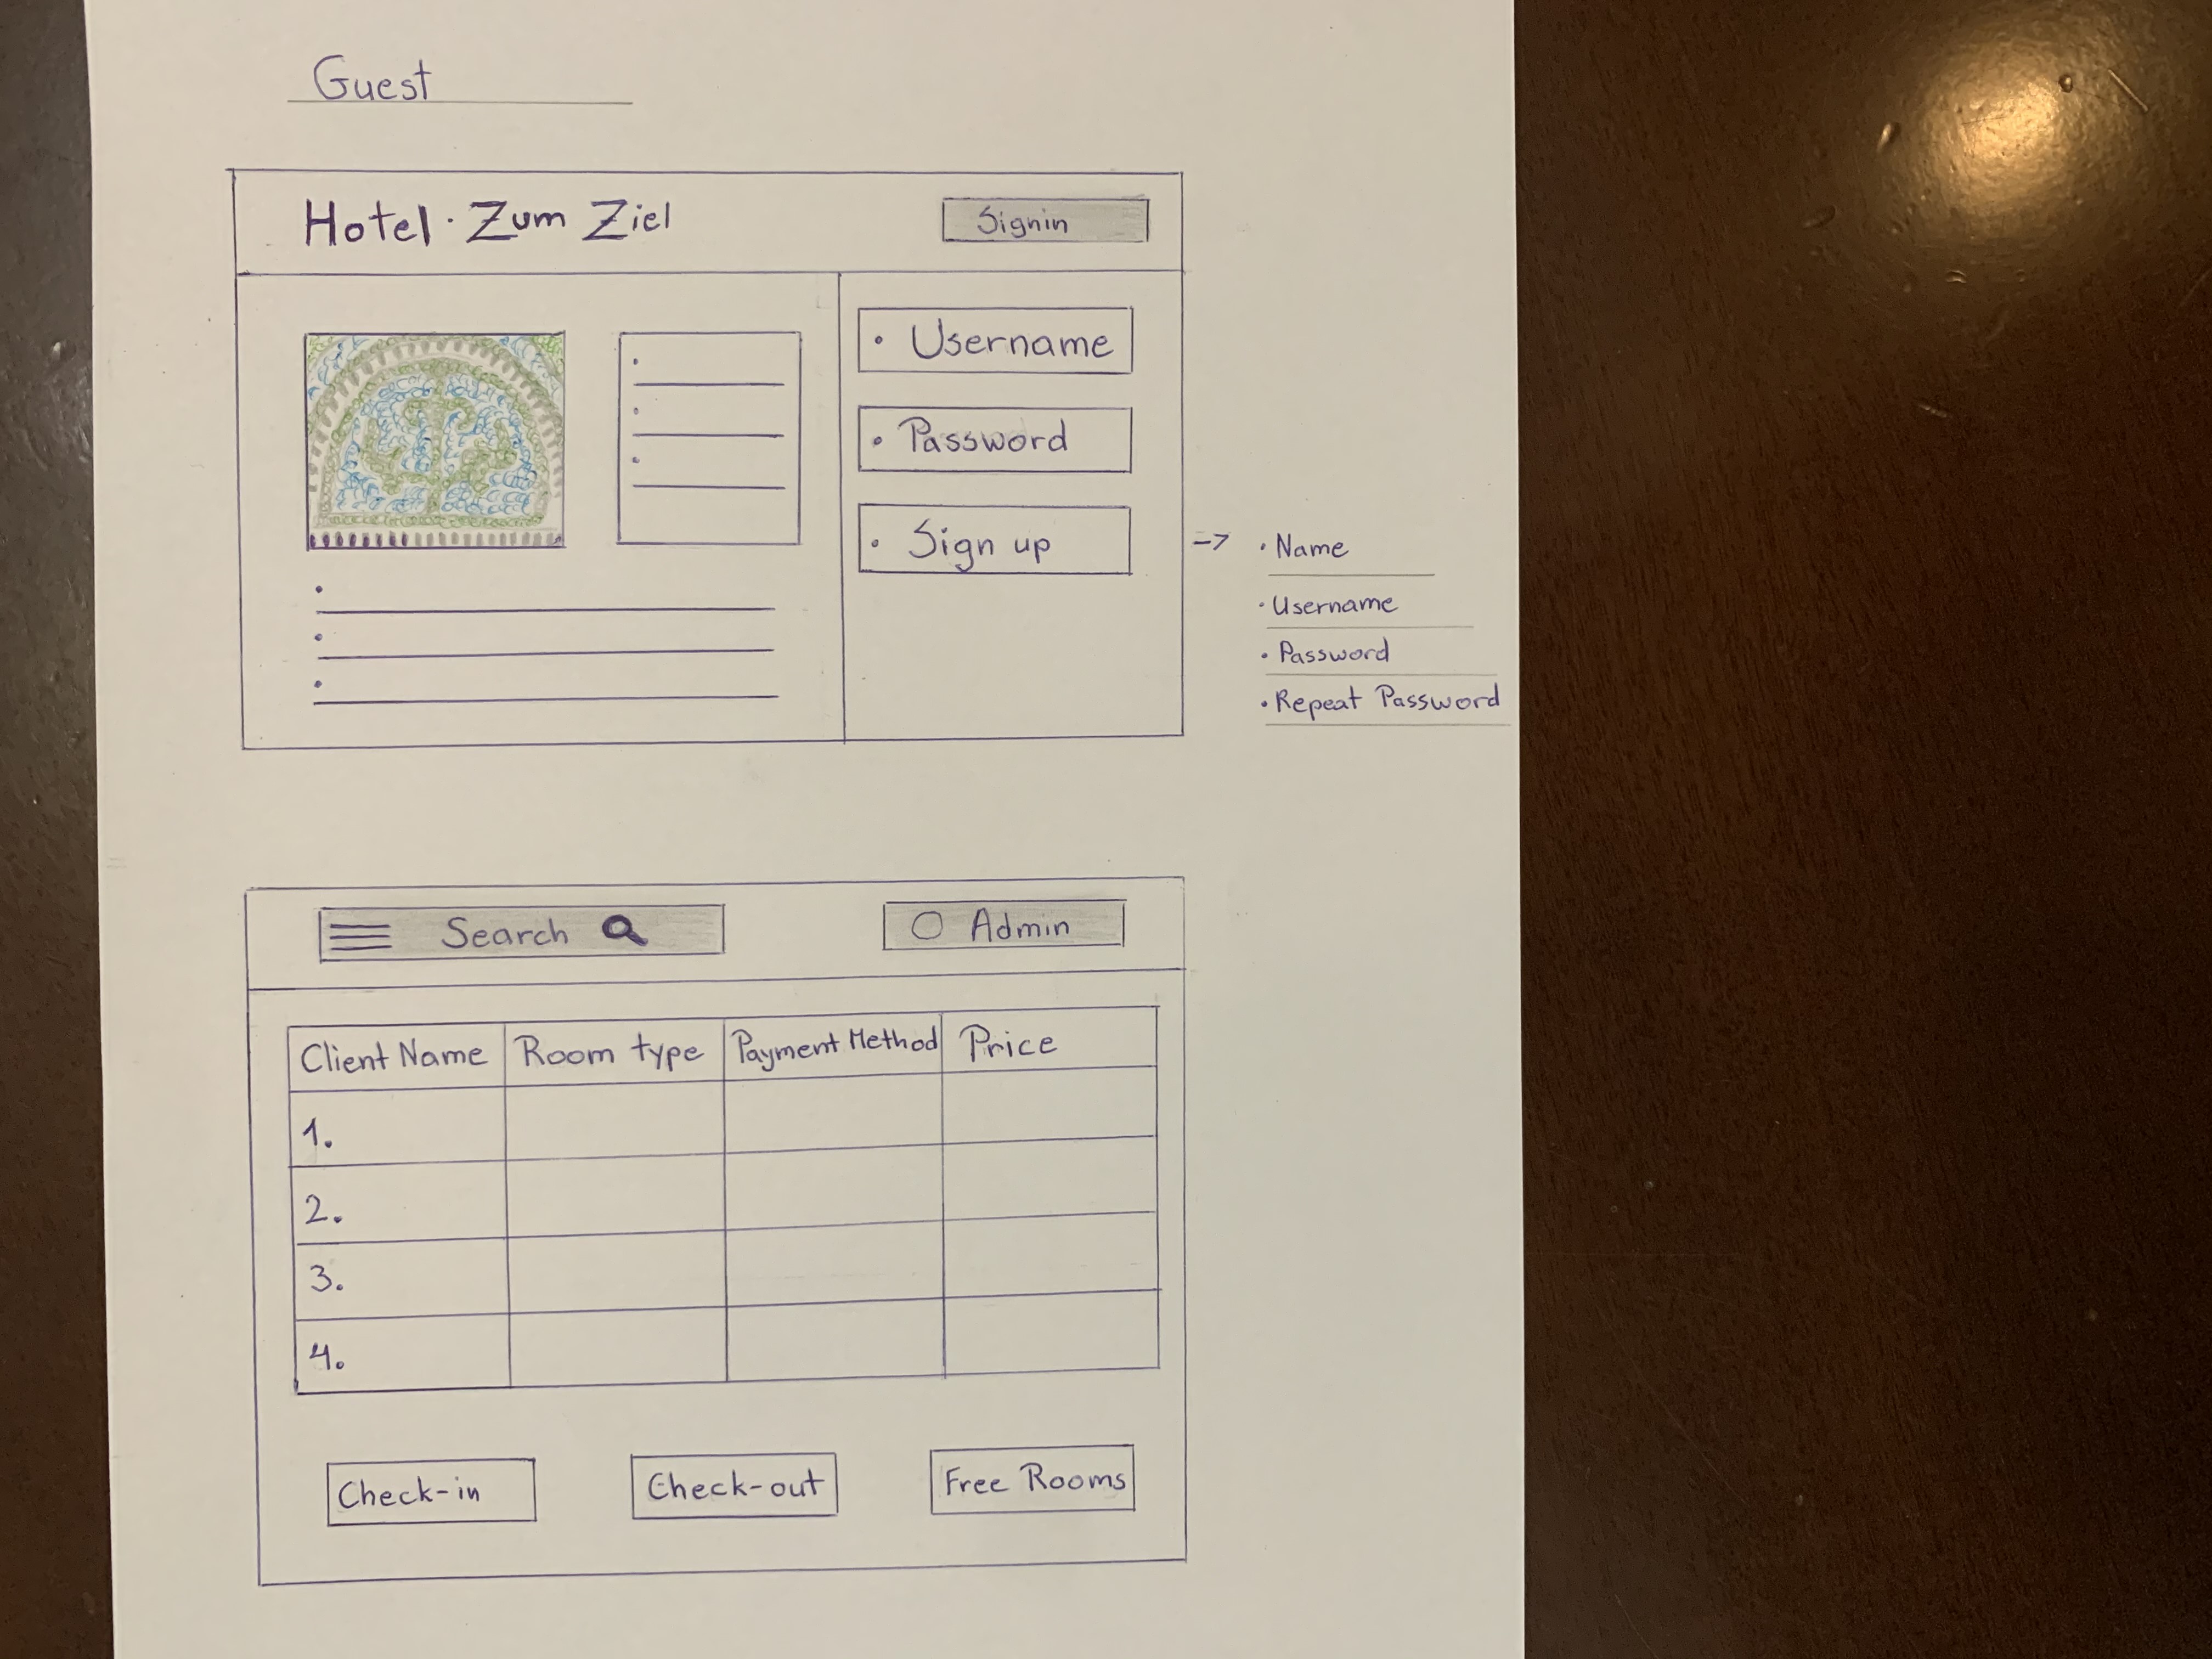 Guest
Hotel · Zum Ziel
Signin
• Username
• Password
• Sign up
-> • Name
• Username
• Password
• Repeat Password
Search
Admin
Client Name Room type Payment Method Price
1.
2.
3.
4.
Check-in
Check-out
Free Rooms